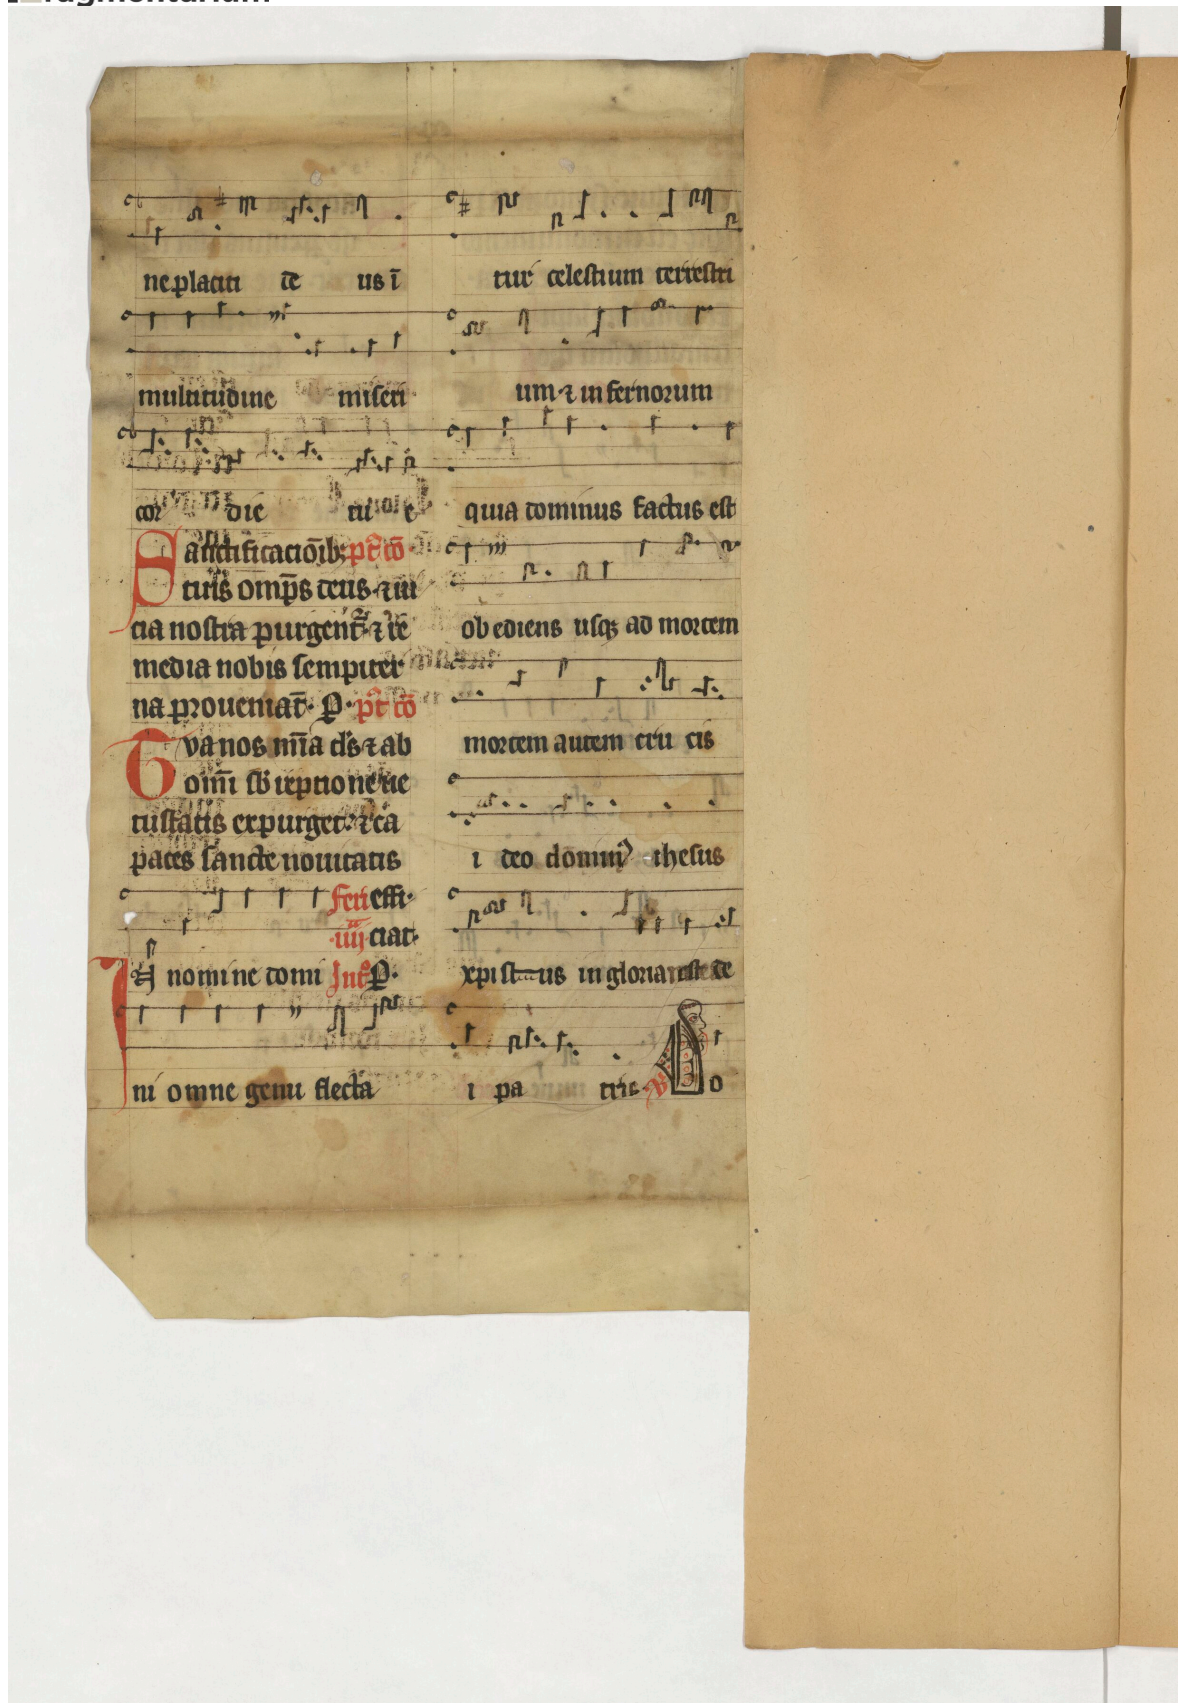 ne placiti de us ī
multitudine miseri
cor die tu e
Sanctificacioīb; pt̄ cō
tuis omp̄s deus ⁊ ui
cia nostra purgent᷑ ⁊ re
media nobis sempiter
na proueniāt· P· pt̄ cō
Tua nos mīa ds̄ ⁊ ab
omī sb̄ reptione ue
tustatis expurget· ⁊ ca
paces sancte nouitatis
feri effi·
·iiij· ciat·
In nomine domi Int̄ P·
ni omne genu flecta
tur celestium terrestri
um ⁊ infernorum
quia dominus factus est
obediens usq; ad mortem
mortem autem cru cis
i deo domin᷒ ihesus
xpistus in gloria est de
i pa tris· Do